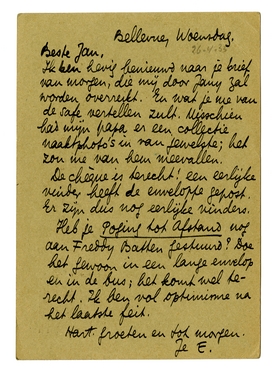 Bellevue, Woensdag.
26-4-33
Beste Jan,
Ik ben hevig benieuwd naar je brief
van morgen, die mij door Jany zal
worden overreikt. En wat je me van
de safe vertellen zult. Misschien
had mijn papa er een collectie
naaktphoto's in van gewelste; het
zou me van hem meevallen.
De chèque is terecht! een eerlijke
vinder heeft de enveloppe gepost.
Er zijn dus nog eerlijke vinders.
Heb je Poging tot Afstand nog
aan Freddy Batten gestuurd? Doe
het gewoon in een lange envelop
en in de bus; het komt wel te-
recht. Ik ben vol optimisme na
het laatste feit.
Hart. groeten en tot morgen.
Je E.